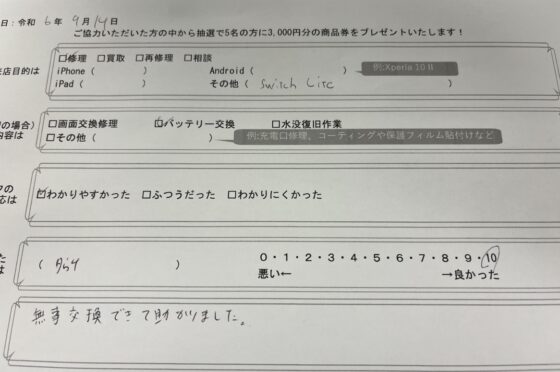 日：令和 6 年 9 月 14 日
ご協力いただいた方の中から抽選で5名の方に3,000円分の商品券をプレゼントいたします！
来店目的は
☑修理 □買取 □再修理 □相談
iPhone（ ） Android（ ） 例:Xperia 10 II
iPad（ ） その他（ Switch Lite
の場合）
内容は
□画面交換修理 ☑バッテリー交換 □水没復旧作業
□その他（ ） 例:充電口修理、コーティングや保護フィルム貼付けなど
フの
応は
☑わかりやすかった □ふつうだった □わかりにくかった
た
は
（ ）
0・1・2・3・4・5・6・7・8・9・10
悪い← →良かった
無事交換できて助かりました。